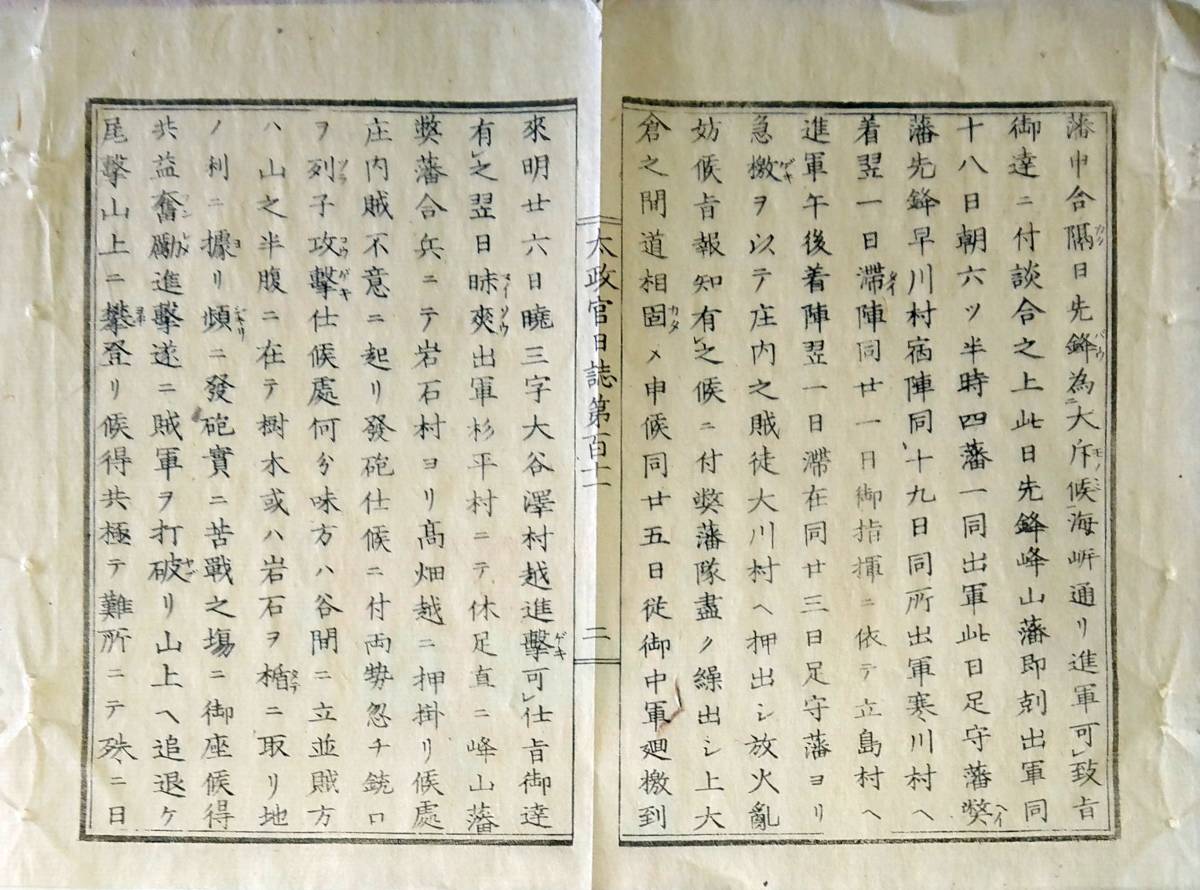 藩申合隔日先鋒為ニ大斥候海岍通リ進軍可レ致旨
御達ニ付談合之上此日先鋒峰山藩即刻出軍同
十八日朝六ツ半時四藩一同出軍此日足守藩獘
藩先鋒早川村宿陣同十九日同所出軍寒川村ヘ
着翌一日滯陣同廿一日御指揮ニ依テ立島村ヘ
進軍午後着陣翌一日滯在同廿三日足守藩ヨリ
急檄ヲ以テ庄内之賊徒大川村ヘ押出シ放火亂
妨候旨報知有レ之候ニ付獘藩隊盡ク繰出シ上大
倉之間道相固メ申候同廿五日従御中軍廻檄到
太政官日誌第百十一
二
來明廿六日曉三字大谷澤村越進擊可レ仕旨御達
有レ之翌日昧爽出軍杉平村ニテ休足直ニ峰山藩
獘藩合兵ニテ岩石村ヨリ髙畑越ニ押掛リ候處
庄内賊不意ニ起リ發砲仕候ニ付両勢忽チ銃ロ
ヲ列子攻擊仕候處何分味方ハ谷間ニ立並賊方
ハ山之半腹ニ在テ樹木或ハ岩石ヲ楯ニ取リ地
ノ利ニ據リ頻ニ發砲實ニ苦戰之塲ニ御座候得
共益奮勵進擊遂ニ賊軍ヲ打破リ山上ヘ追退ケ
尾擊山上ニ攀登リ候得共極テ難所ニテ殊ニ日